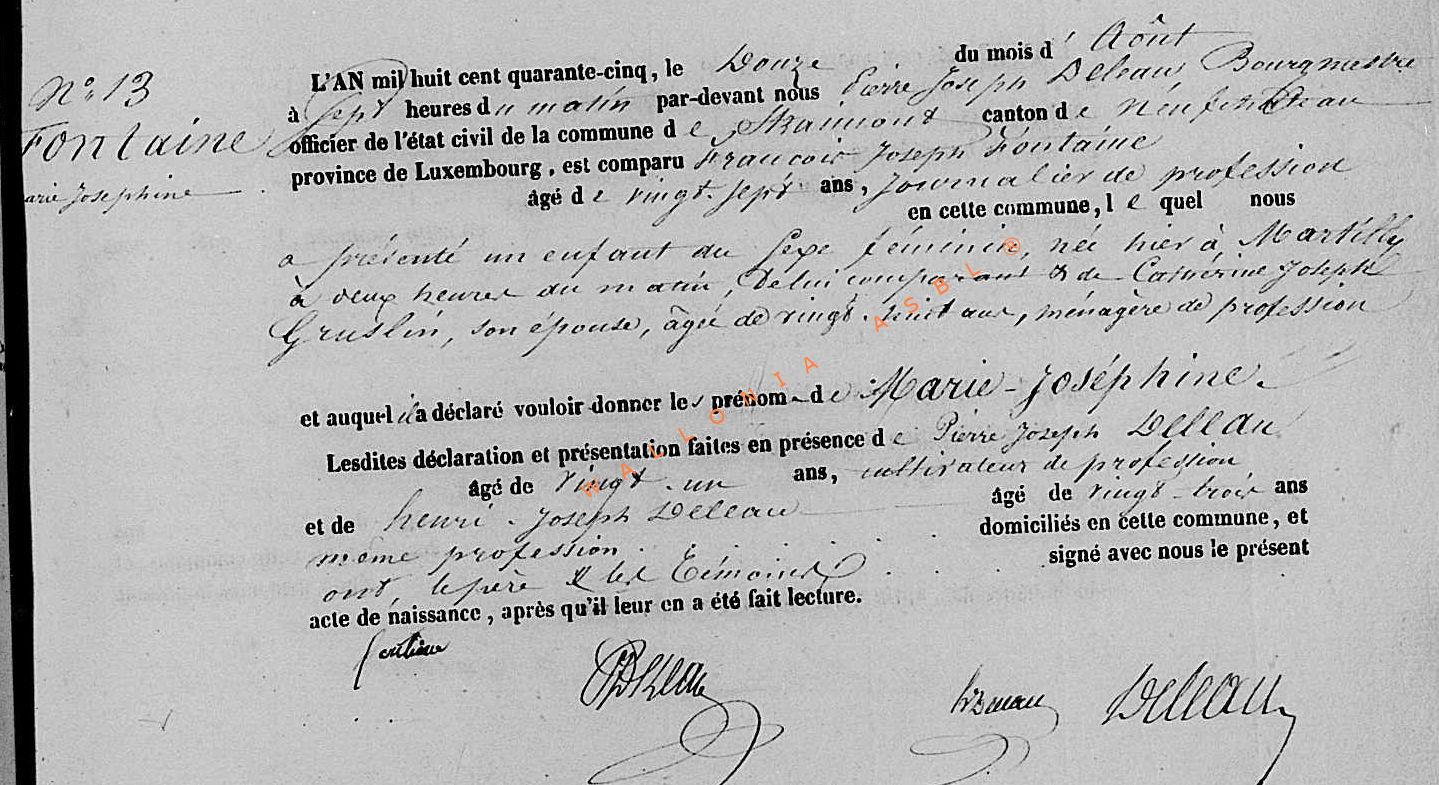 N° 13
Fontaine
arie Josephine
L'AN mil huit cent quarante-cinq, le Douze du mois d' Août
à Sept heures du matin par-devant nous Pierre Joseph Deleau Bourgmestre
officier de l'état civil de la commune de Straimont canton de Neufchateau
province de Luxembourg, est comparu François Joseph Fontaine
âgé de vingt-sept ans, Journalier de profession
en cette commune, lequel nous
a présenté un enfant du sexe féminin, née hier à Martilly
à deux heures du matin, de lui comparant & de Catherine Joseph
Gruslin, son épouse, âgée de vingt-huit ans, ménagère de profession
et auquel il a déclaré vouloir donner les prénom de Marie-Joséphine.
Lesdites déclaration et présentation faites en présence de Pierre Joseph Deleau
âgé de vingt-un ans, cultivateur de profession
et de henri-Joseph Deleau âgé de vingt-trois ans
même profession domiciliés en cette commune, et
ont, le père & les témoins signé avec nous le présent
acte de naissance, après qu'il leur en a été fait lecture.
fontaine PJDeleau Deleau
WALLONIA ASBL ®